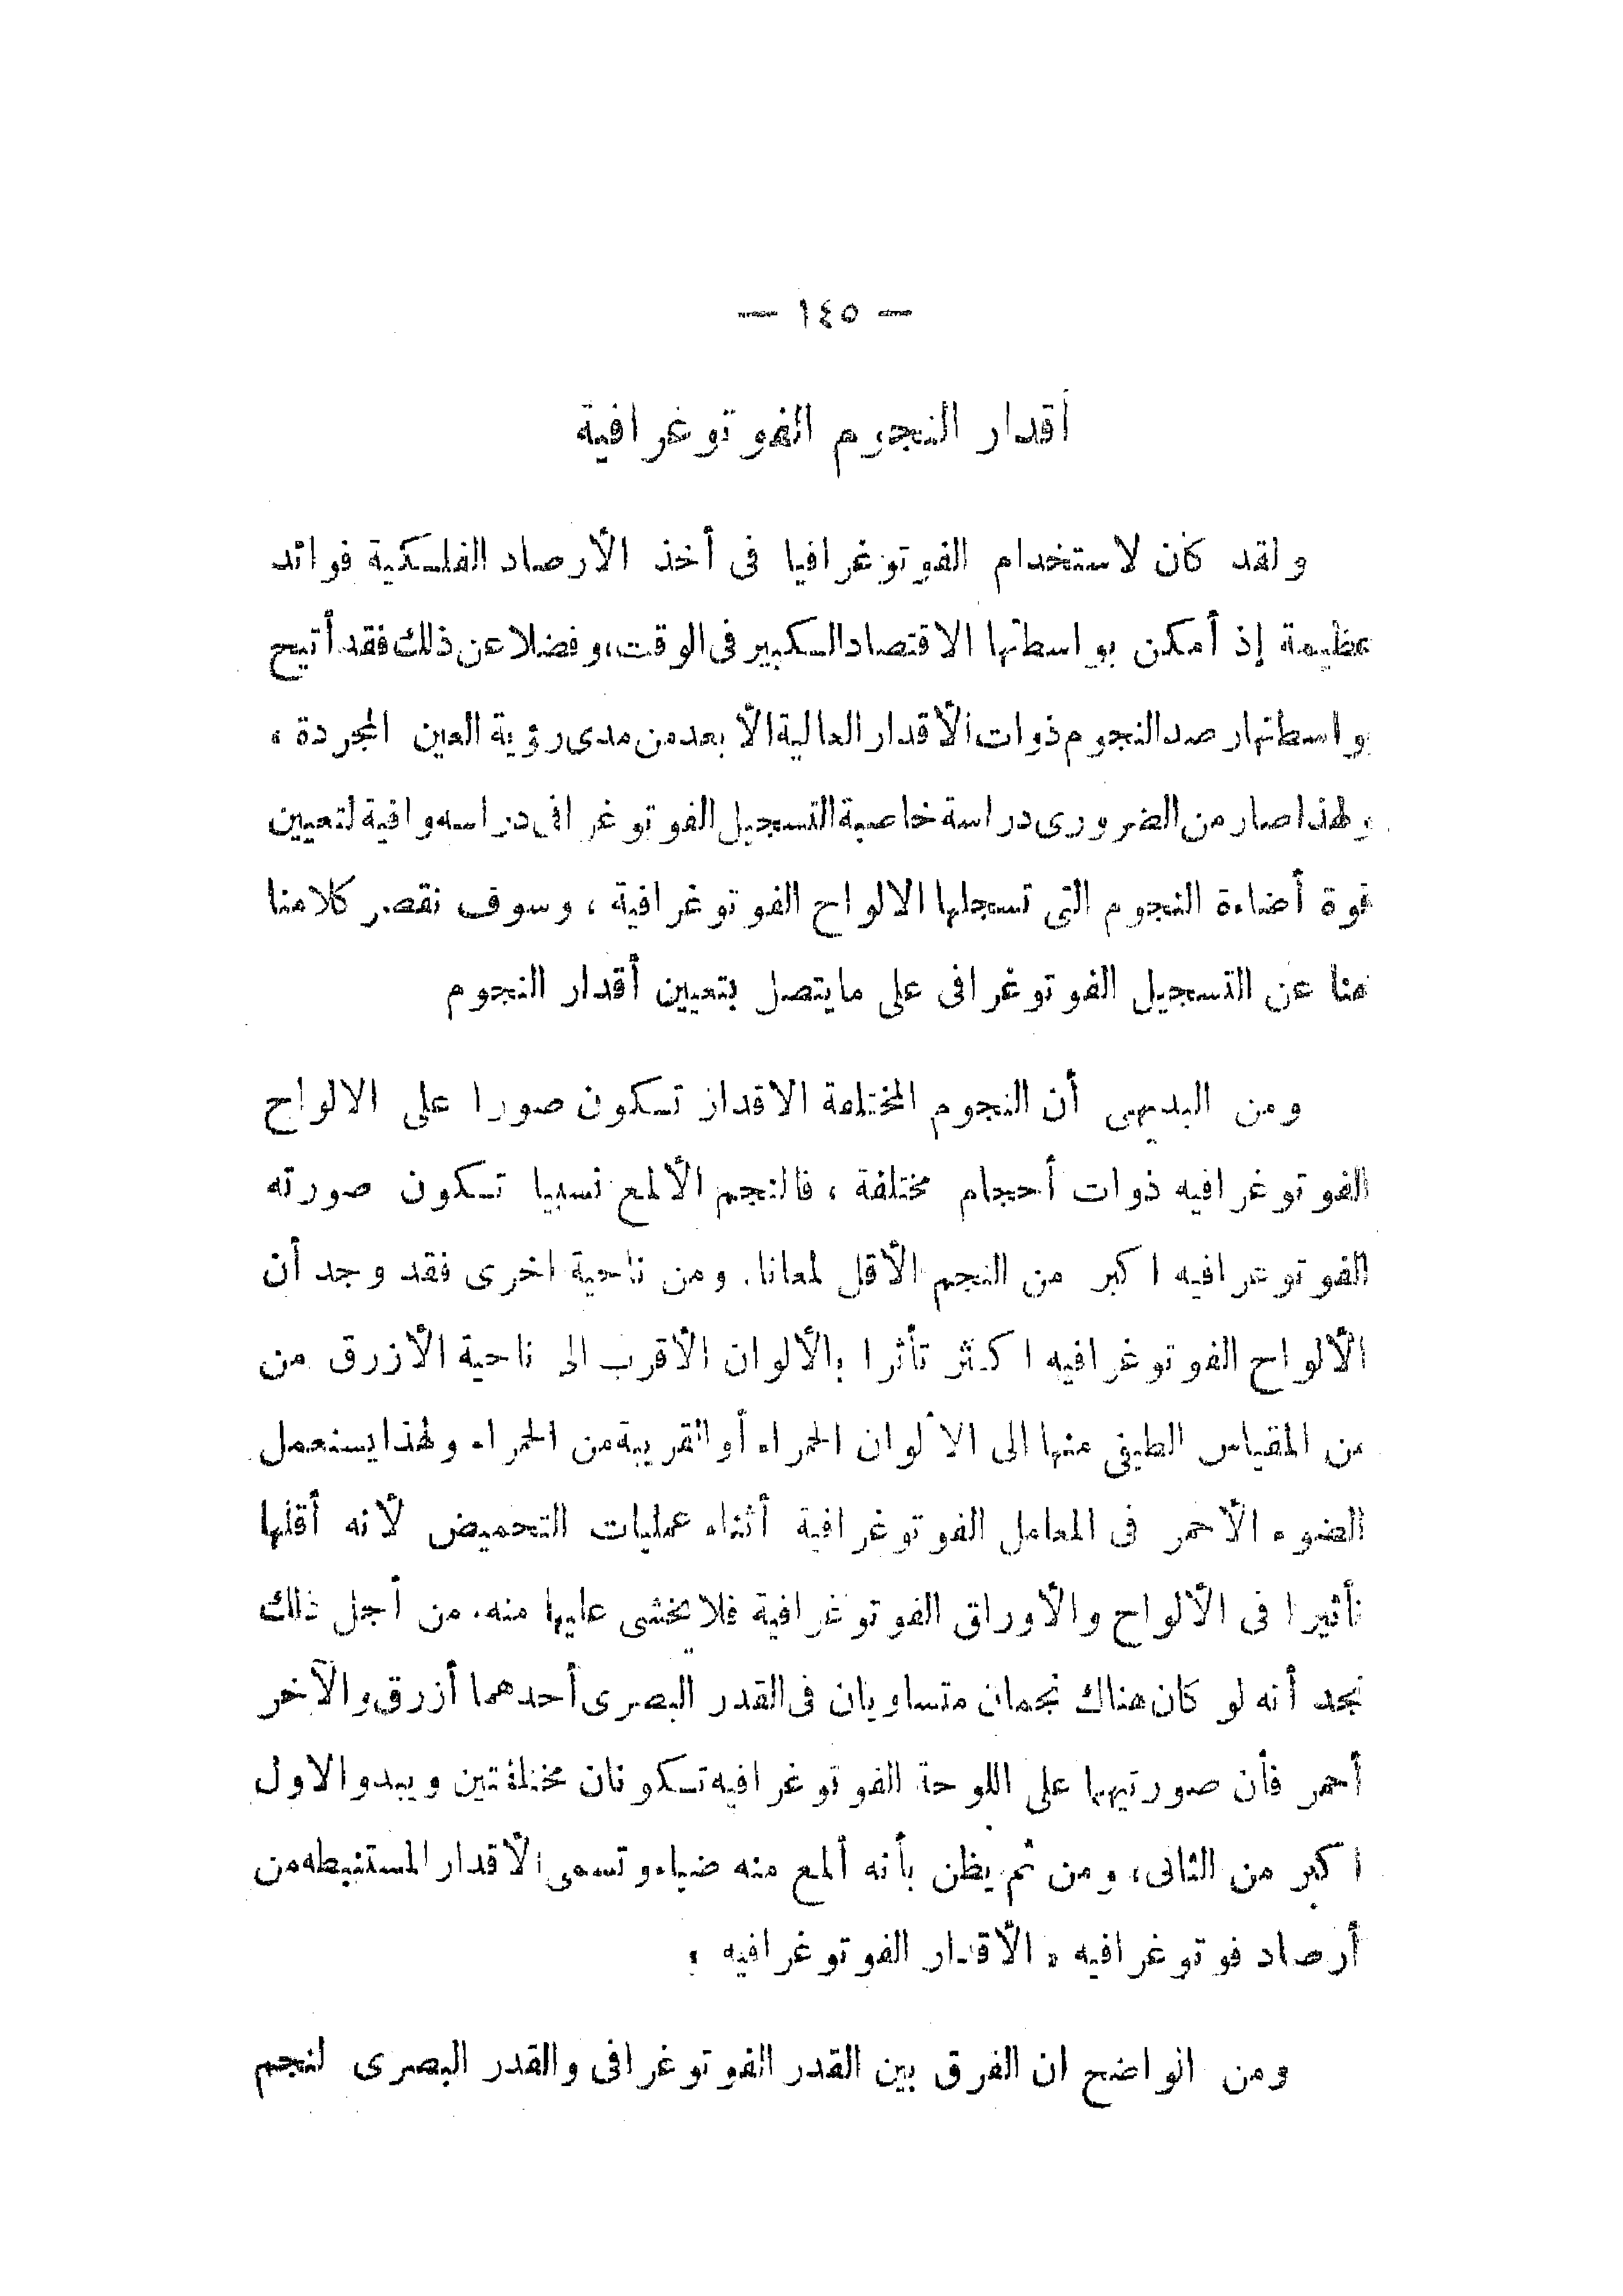 — ١٤٥ —
أقدار النجوم الفوتوغرافية
ولقد كان لاستخدام الفوتوغرافيا فى أخذ الأرصاد الفلكية فوائد
عظيمة إذ أمكن بواسطتها الاقتصاد الكبير فى الوقت، وفضلا عن ذلك فقد أتيح
بواسطتها رصد النجوم ذوات الأقدار العالية الأبعد من مدى رؤية العين المجردة ،
ولهذا صار من الضرورى دراسة خاصية التسجيل الفوتوغرافى دراسه وافية لتعيين
قوة أضاءة النجوم التى تسجلها الالواح الفوتوغرافية ، وسوف نقصر كلامنا
هنا عن التسجيل الفوتوغرافى على مايتصل بتعيين أقدار النجوم
ومن البديهى أن النجوم المختلفة الاقدار تكون صورا على الالواح
الفوتوغرافيه ذوات أحجام مختلفة ، فالنجم الألمع نسبيا تكون صورته
الفوتوغرافيه اكبر من النجم الأقل لمعانا. ومن ناحية اخرى فقد وجد أن
الألواح الفوتوغرافيه اكثر تأثرا بالألوان الأقرب الى ناحية الأزرق من
من المقياس الطيفى منها الى الألوان الحمراء أو القريبة من الحمراء ولهذا يستعمل
الضوء الأحمر فى المعامل الفوتوغرافية أثناء عمليات التحميض لأنه أقلها
تأثيرا فى الألواح والأوراق الفوتوغرافية فلا يخشى عليها منه. من أجل ذلك
نجد أنه لو كان هناك نجمان متساويان فى القدر البصرى أحدهما أزرق والآخر
أحمر فأن صورتيهما على اللوحة الفوتوغرافيه تكونان مختلفتين ويبدو الاول
اكبر من الثانى، ومن ثم يظن بأنه ألمع منه ضياء وتسمى الأقدار المستنبطه من
أرصاد فوتوغرافيه « الأقدار الفوتوغرافيه »
ومن الواضح ان الفرق بين القدر الفوتوغرافى والقدر البصرى لنجم